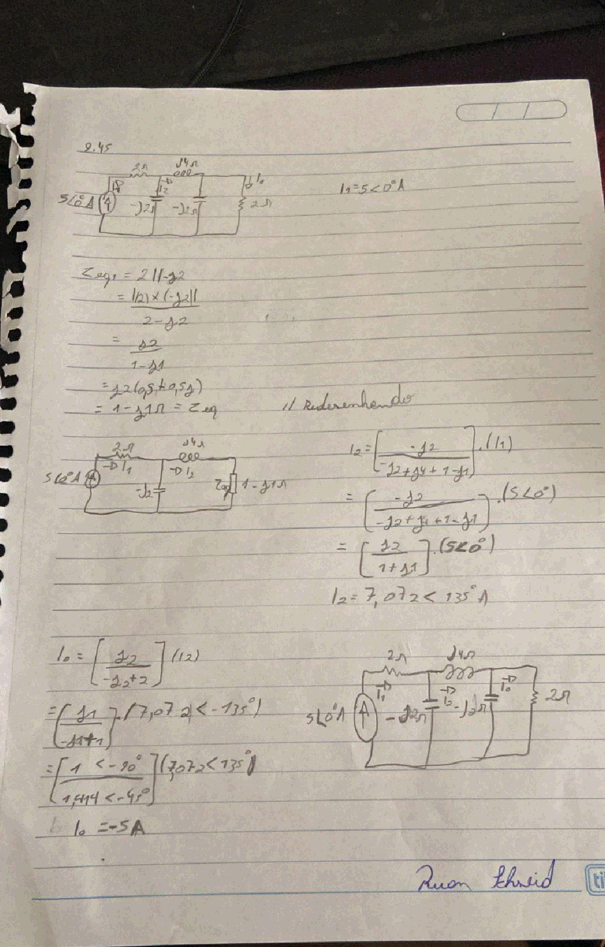 9.45
2Ω j4Ω
5∠0°A I2 -j2Ω -j2Ω I0 2Ω
I1=5<0°A
Zeq1 = 2||-j2
= |(2)×(-j2)|
2-j2
= j2
1-j1
= j2(0,5+0,5j)
= 1-j1Ω = Zeq
// Redesenhando
2Ω j4Ω
5∠0°A I1 -j2 I2 Zeq 1-j1Ω
I2=[-j2 / -j2+j4+1-j1].(I1)
=[-j2 / -j2+j4+1-j1].(5<0°)
=[j2 / 1+j1].(5<0°)
I2=7,072<135°A
I0=[j2 / -j2+2](I2)
=[j1 / -j1+1].(7,072<-135°)
=[1<-90° / 1,414<-45°](7,072<135°)
I0=-5A
2Ω j4Ω
5∠0°A I1 -j2Ω I2 -j2Ω I0 2Ω
Ruan
ti